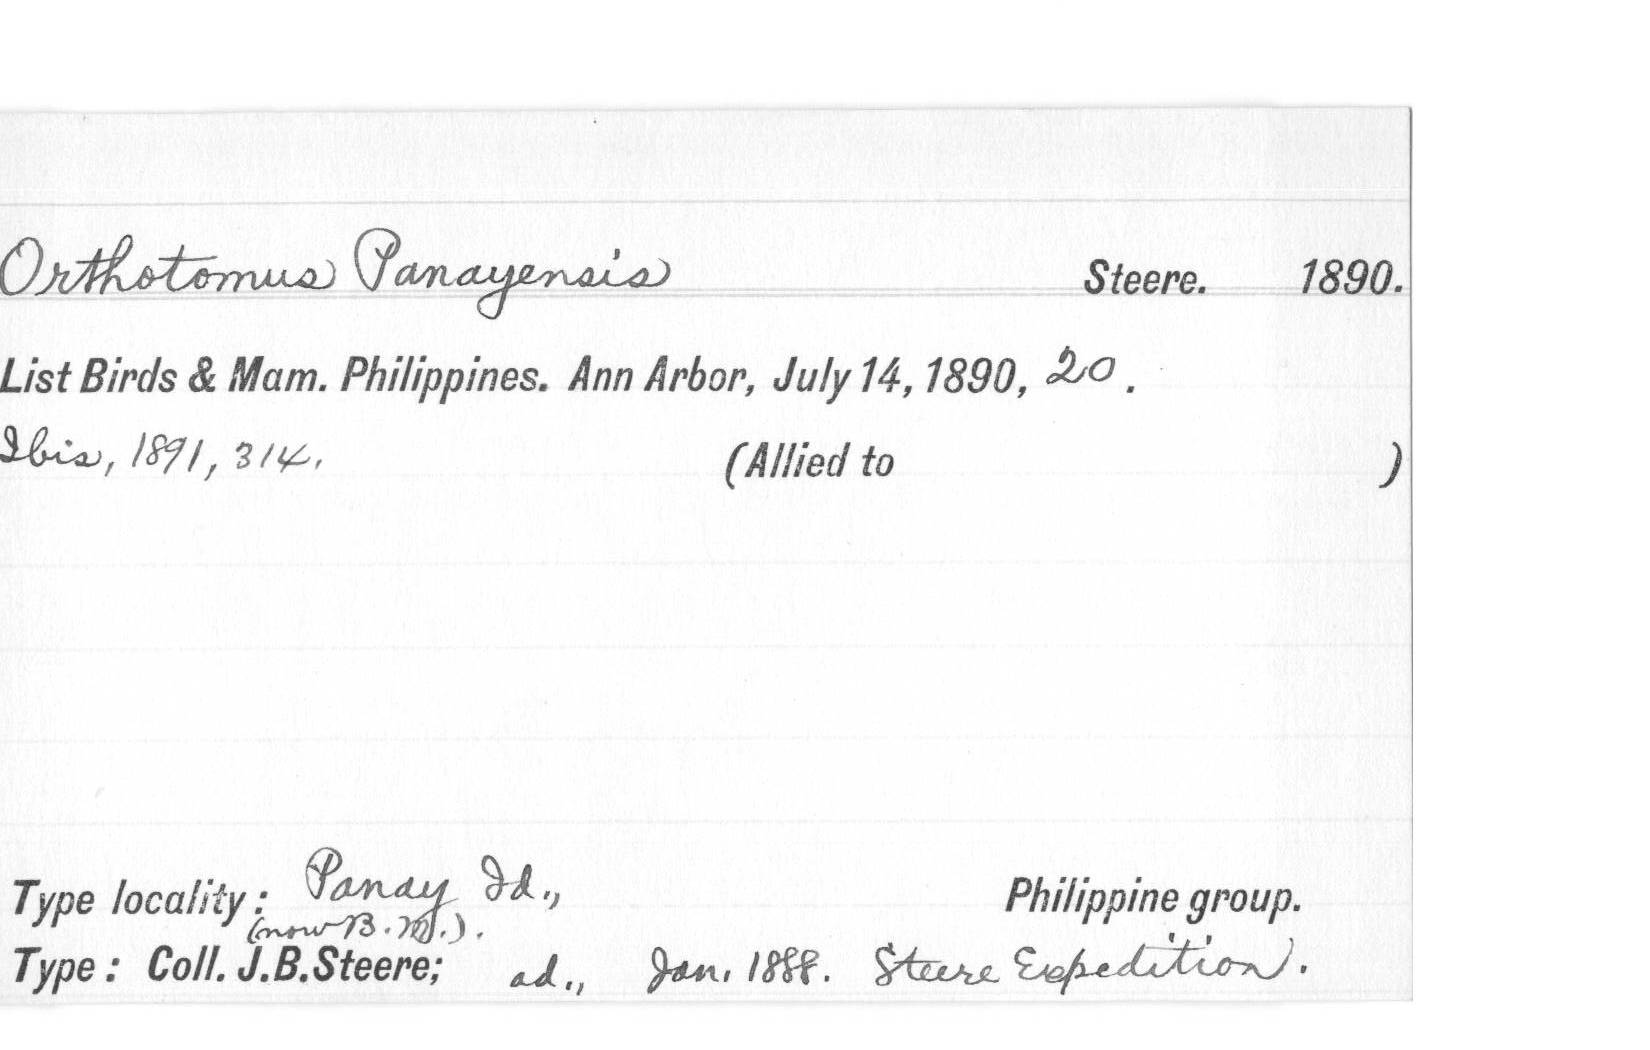 Orthotomus Panayensis Steere. 1890.
List Birds & Mam. Philippines. Ann Arbor, July 14, 1890, 20.
Ibis, 1891, 314. (Allied to )
Type locality: Panay Id., Philippine group.
(now B.M.).
Type: Coll. J.B.Steere; ad., Jan. 1888. Steere Expedition.